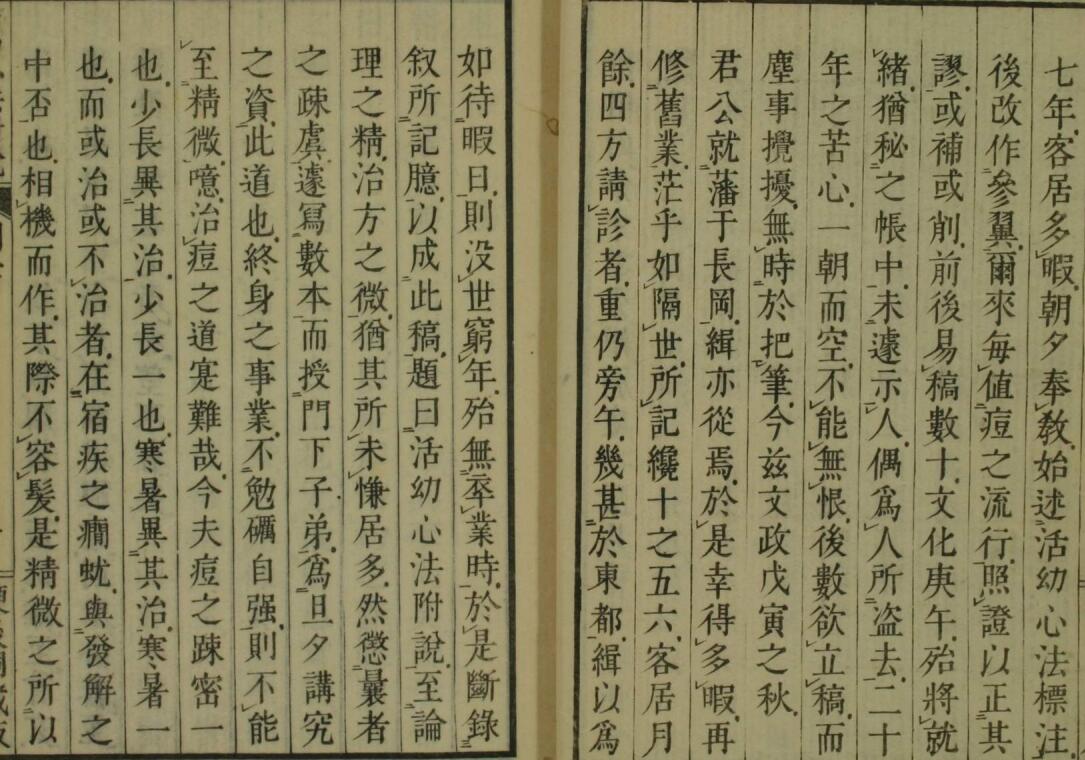 七年客居多暇朝夕奉教始述活幼心法標注
後改作參翼爾來每値痘之流行照證以正其
謬或補或削前後易稿數十文化庚午殆將就
緒猶秘之帳中未遽示人偶爲人所盜去二十
年之苦心一朝而空不能無恨後數欲立稿而
塵事攪擾無時於把筆今茲文政戊寅之秋
君公就藩于長岡緝亦從焉於是幸得多暇再
修舊業茫乎如隔世所記纔十之五六客居月
餘四方請診者重仍旁午幾甚於東都緝以爲
如待暇日則没世窮年殆無卒業時於是斷錄
叙所記臆以成此稿題曰活幼心法附說至論
理之精治方之微猶其所未慊居多然懲曩者
之疎虞遽寫數本而授門下子弟爲旦夕講究
之資此道也終身之事業不勉礪自强則不能
至精微噫治痘之道寔難哉今夫痘之踈密一
也少長異其治少長一也寒暑異其治寒暑一
也而或治或不治者在宿疾之癎蚘與發解之
中否也相機而作其際不容髮是精微之所以